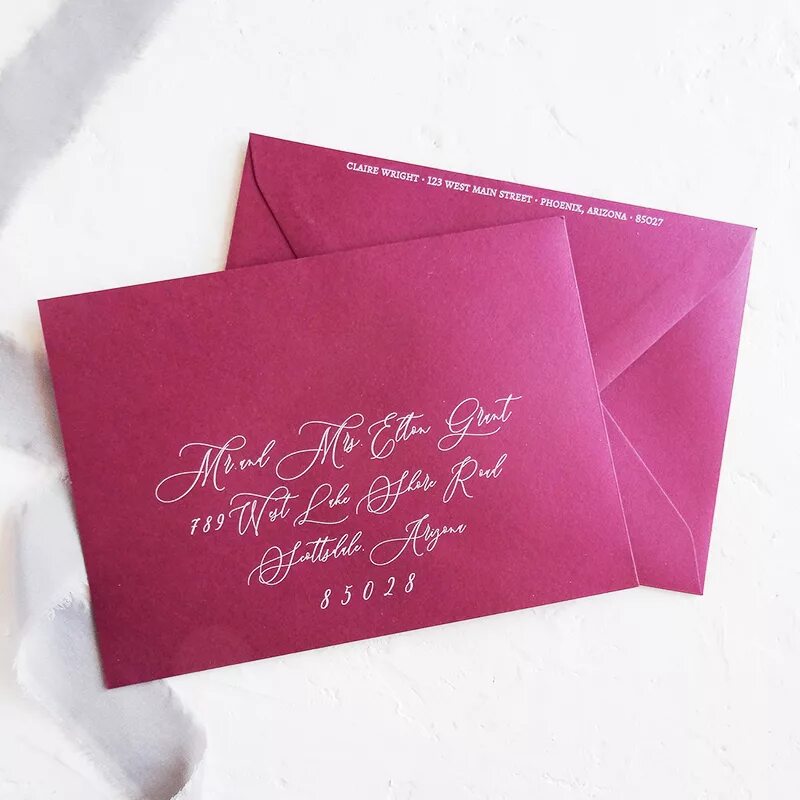 CLAIRE WRIGHT • 123 WEST MAIN STREET • PHOENIX, ARIZONA • 85027
Mr. and Mrs. Elton Grant
789 West Lake Shore Road
Scottsdale, Arizona
85028